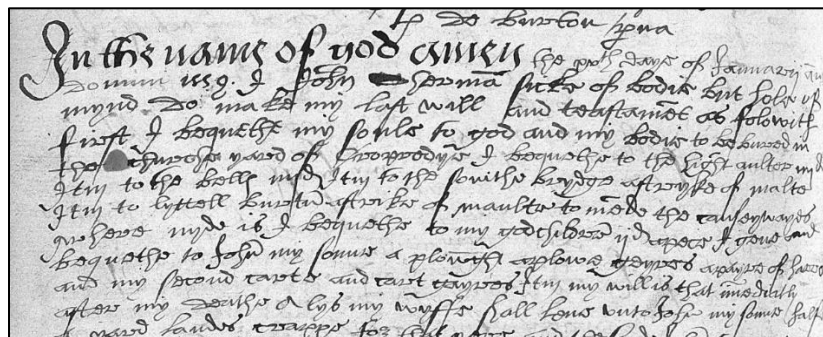 de burton
In the name of god amen the daye of Januarij
domini 1559. I John sherman sicke of bodie but hole of
mynd do make my last will and teastamēt as folowith
first I bequethe my soule to god and my bodie to be buried in
the churche yarde of Cropredye I bequethe to the hight aulter
Itm to the bells Itm to the southe brydge a stryke of malte
Itm to lyttell burtū a strike of maulte to mēde the causeywayes
where nyde is I bequethe to my godchilderē ijd apece I geve and
bequethe to Johñ my sonne a plough a plowe geyres a payre of
and my second carte and cart gayres Itm my will is that imediatly
after my deathe Alys my wyffe shall leve unto John my sonne halfe
yard landes croppe for that yere and the